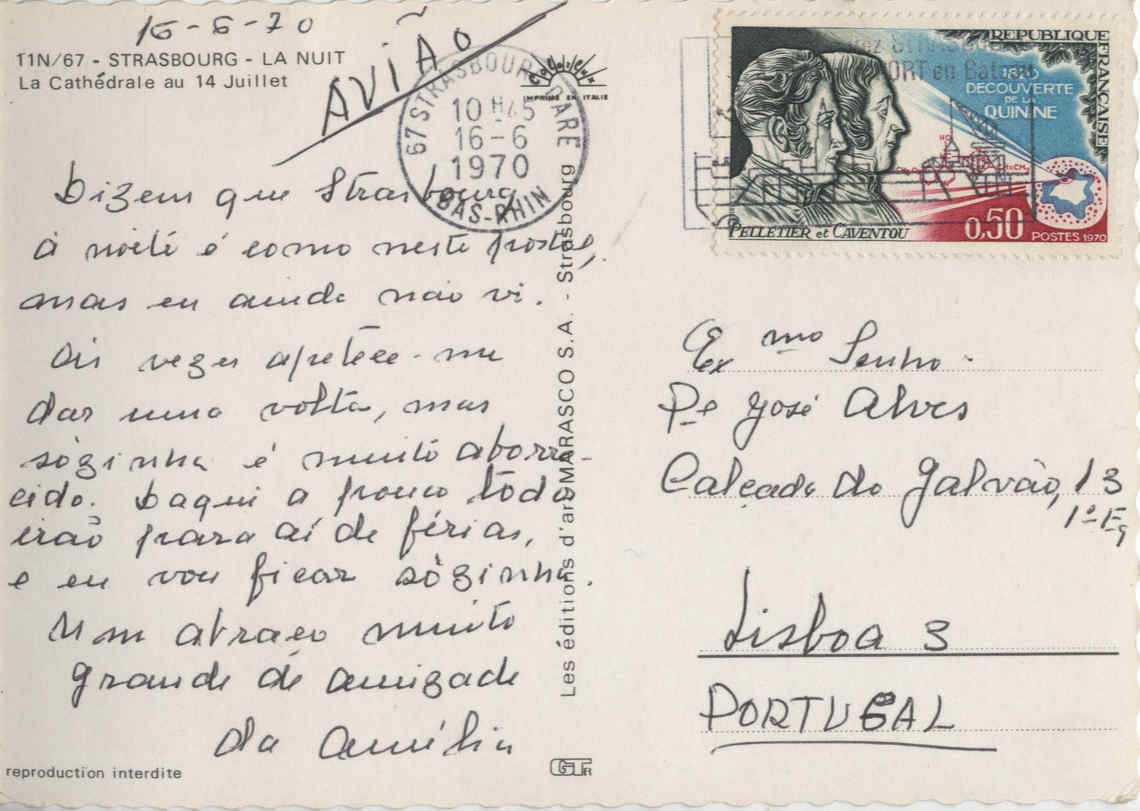 16-6-70
11N/67 - STRASBOURG - LA NUIT
La Cathédrale au 14 Juillet
AVIÃO
67 STRASBOURG GARE
10 H 45
16-6
1970
BAS-RHIN
IMPRIMÉ EN ITALIE
Dizem que Strasbourg
à noite é como neste postal,
mas eu ainda não vi.
Às vezes apetece-me
dar uma volta, mas
sòzinha é muito aborre-
cido. Daqui a pouco todos
irão para aí de férias,
e eu vou ficar sòzinha.
Um abraço muito
grande de amizade
da Amélia
reproduction interdite
Les éditions d'art MARASCO S.A. - Strasbourg
REPUBLIQUE FRANCAISE
1820
DECOUVERTE
DE LA
QUININE
PELLETIER et CAVENTOU
0,50
POSTES 1970
STRASBOURG
PORT en Bateau
Exmo Senhor
Pe José Alves
Calçada do Galvão, 13
1º Eq
Lisboa 3
PORTUGAL